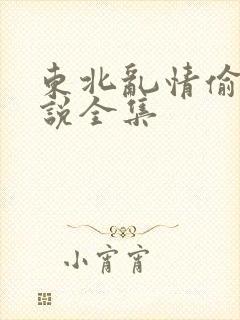 東北亂情偷
說全集
小宵宵